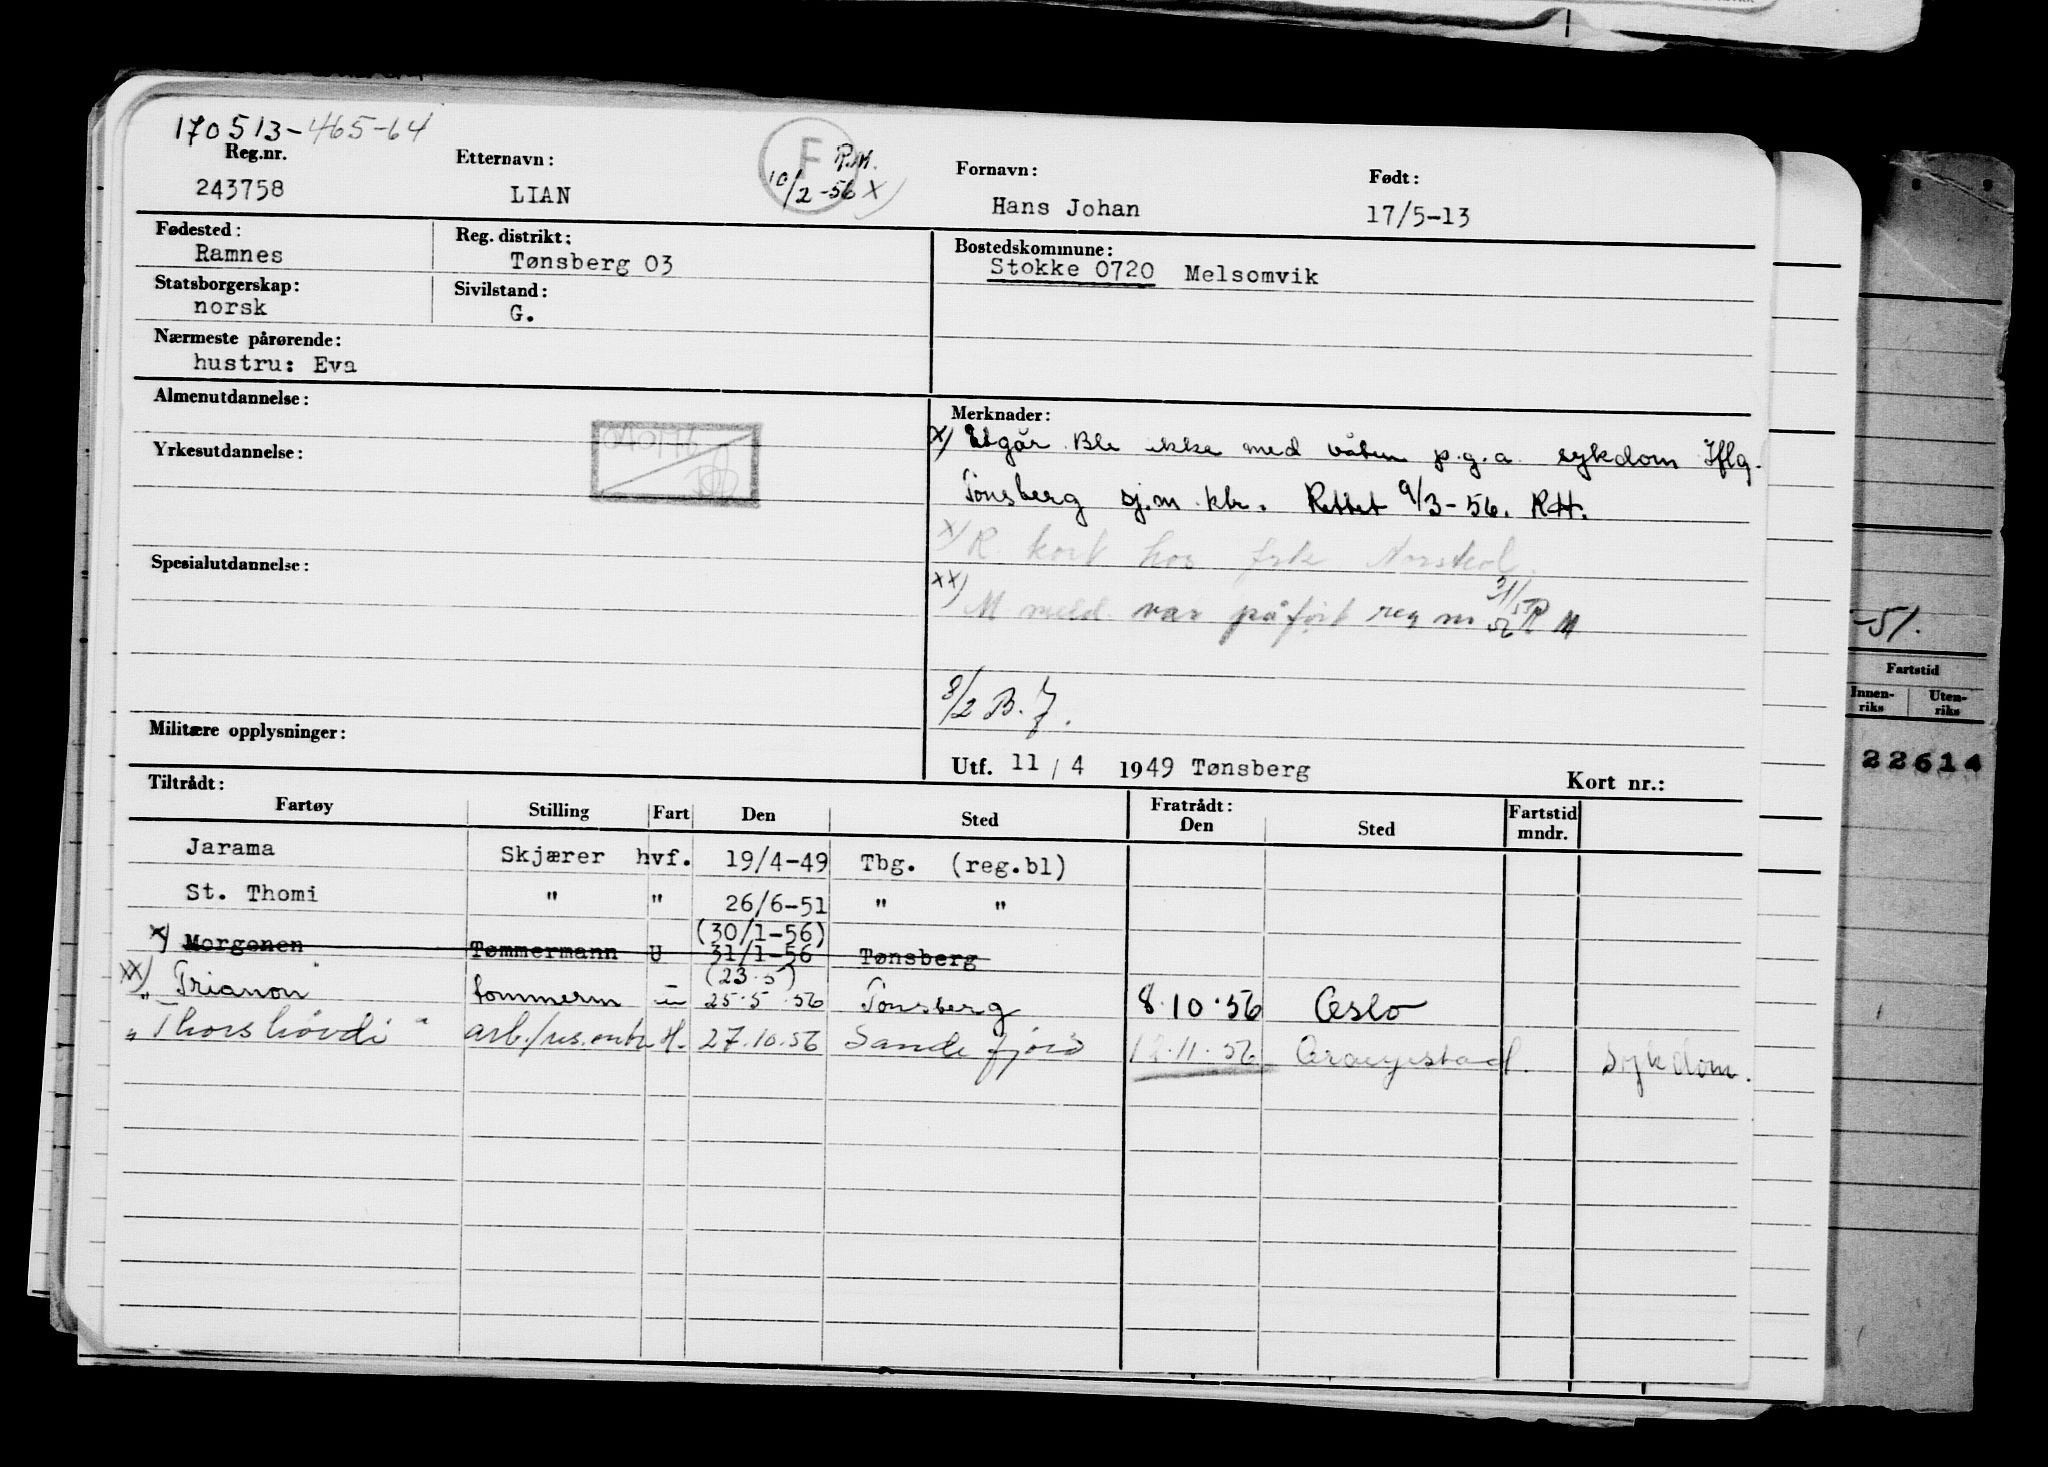 170513-465-64
Reg.nr. Etternavn: F R.M. Fornavn: Født:
243758 LIAN 10/2-56 X) Hans Johan 17/5-13
Fødested: Reg. distrikt: Bostedskommune:
Ramnes Tønsberg 03 Stokke 0720 Melsomvik
Statsborgerskap: Sivilstand:
norsk G.
Nærmeste pårørende:
hustru: Eva
Almenutdannelse: Merknader:
X) Utgår. Ble ikke med båten p.g.a. sykdom Iflg.
Yrkesutdannelse:
Tønsberg sj.m.ktr. Rettet 9/3-56. RH.
X) R. kort hos frk
Spesialutdannelse:
XX) M meld. var påført reg nr
3/2 B.J.
Militære opplysninger:
Utf. 11/4 1949 Tønsberg Kort nr.:
Tiltrådt: Fratrådt:
Fartøy Stilling Fart Den Sted Den Sted Fartstid mndr.
Jarama Skjærer hvf. 19/4-49 Tbg. (reg.bl)
St. Thomi " " 26/6-51 " "
(30/1-56)
X) Morgenen Tømmermann U 31/1-56 Tønsberg
(23.5)
XX) "Trianon" tømmerm u 25.5.56 Tønsberg 8.10.56 Oslo
"Thorshövdi" H. 27.10.56 Sandefjord 12.11.56 Oranjestad. Sykdom.
-51.
Fartstid
Innen-riks Uten-riks
22614